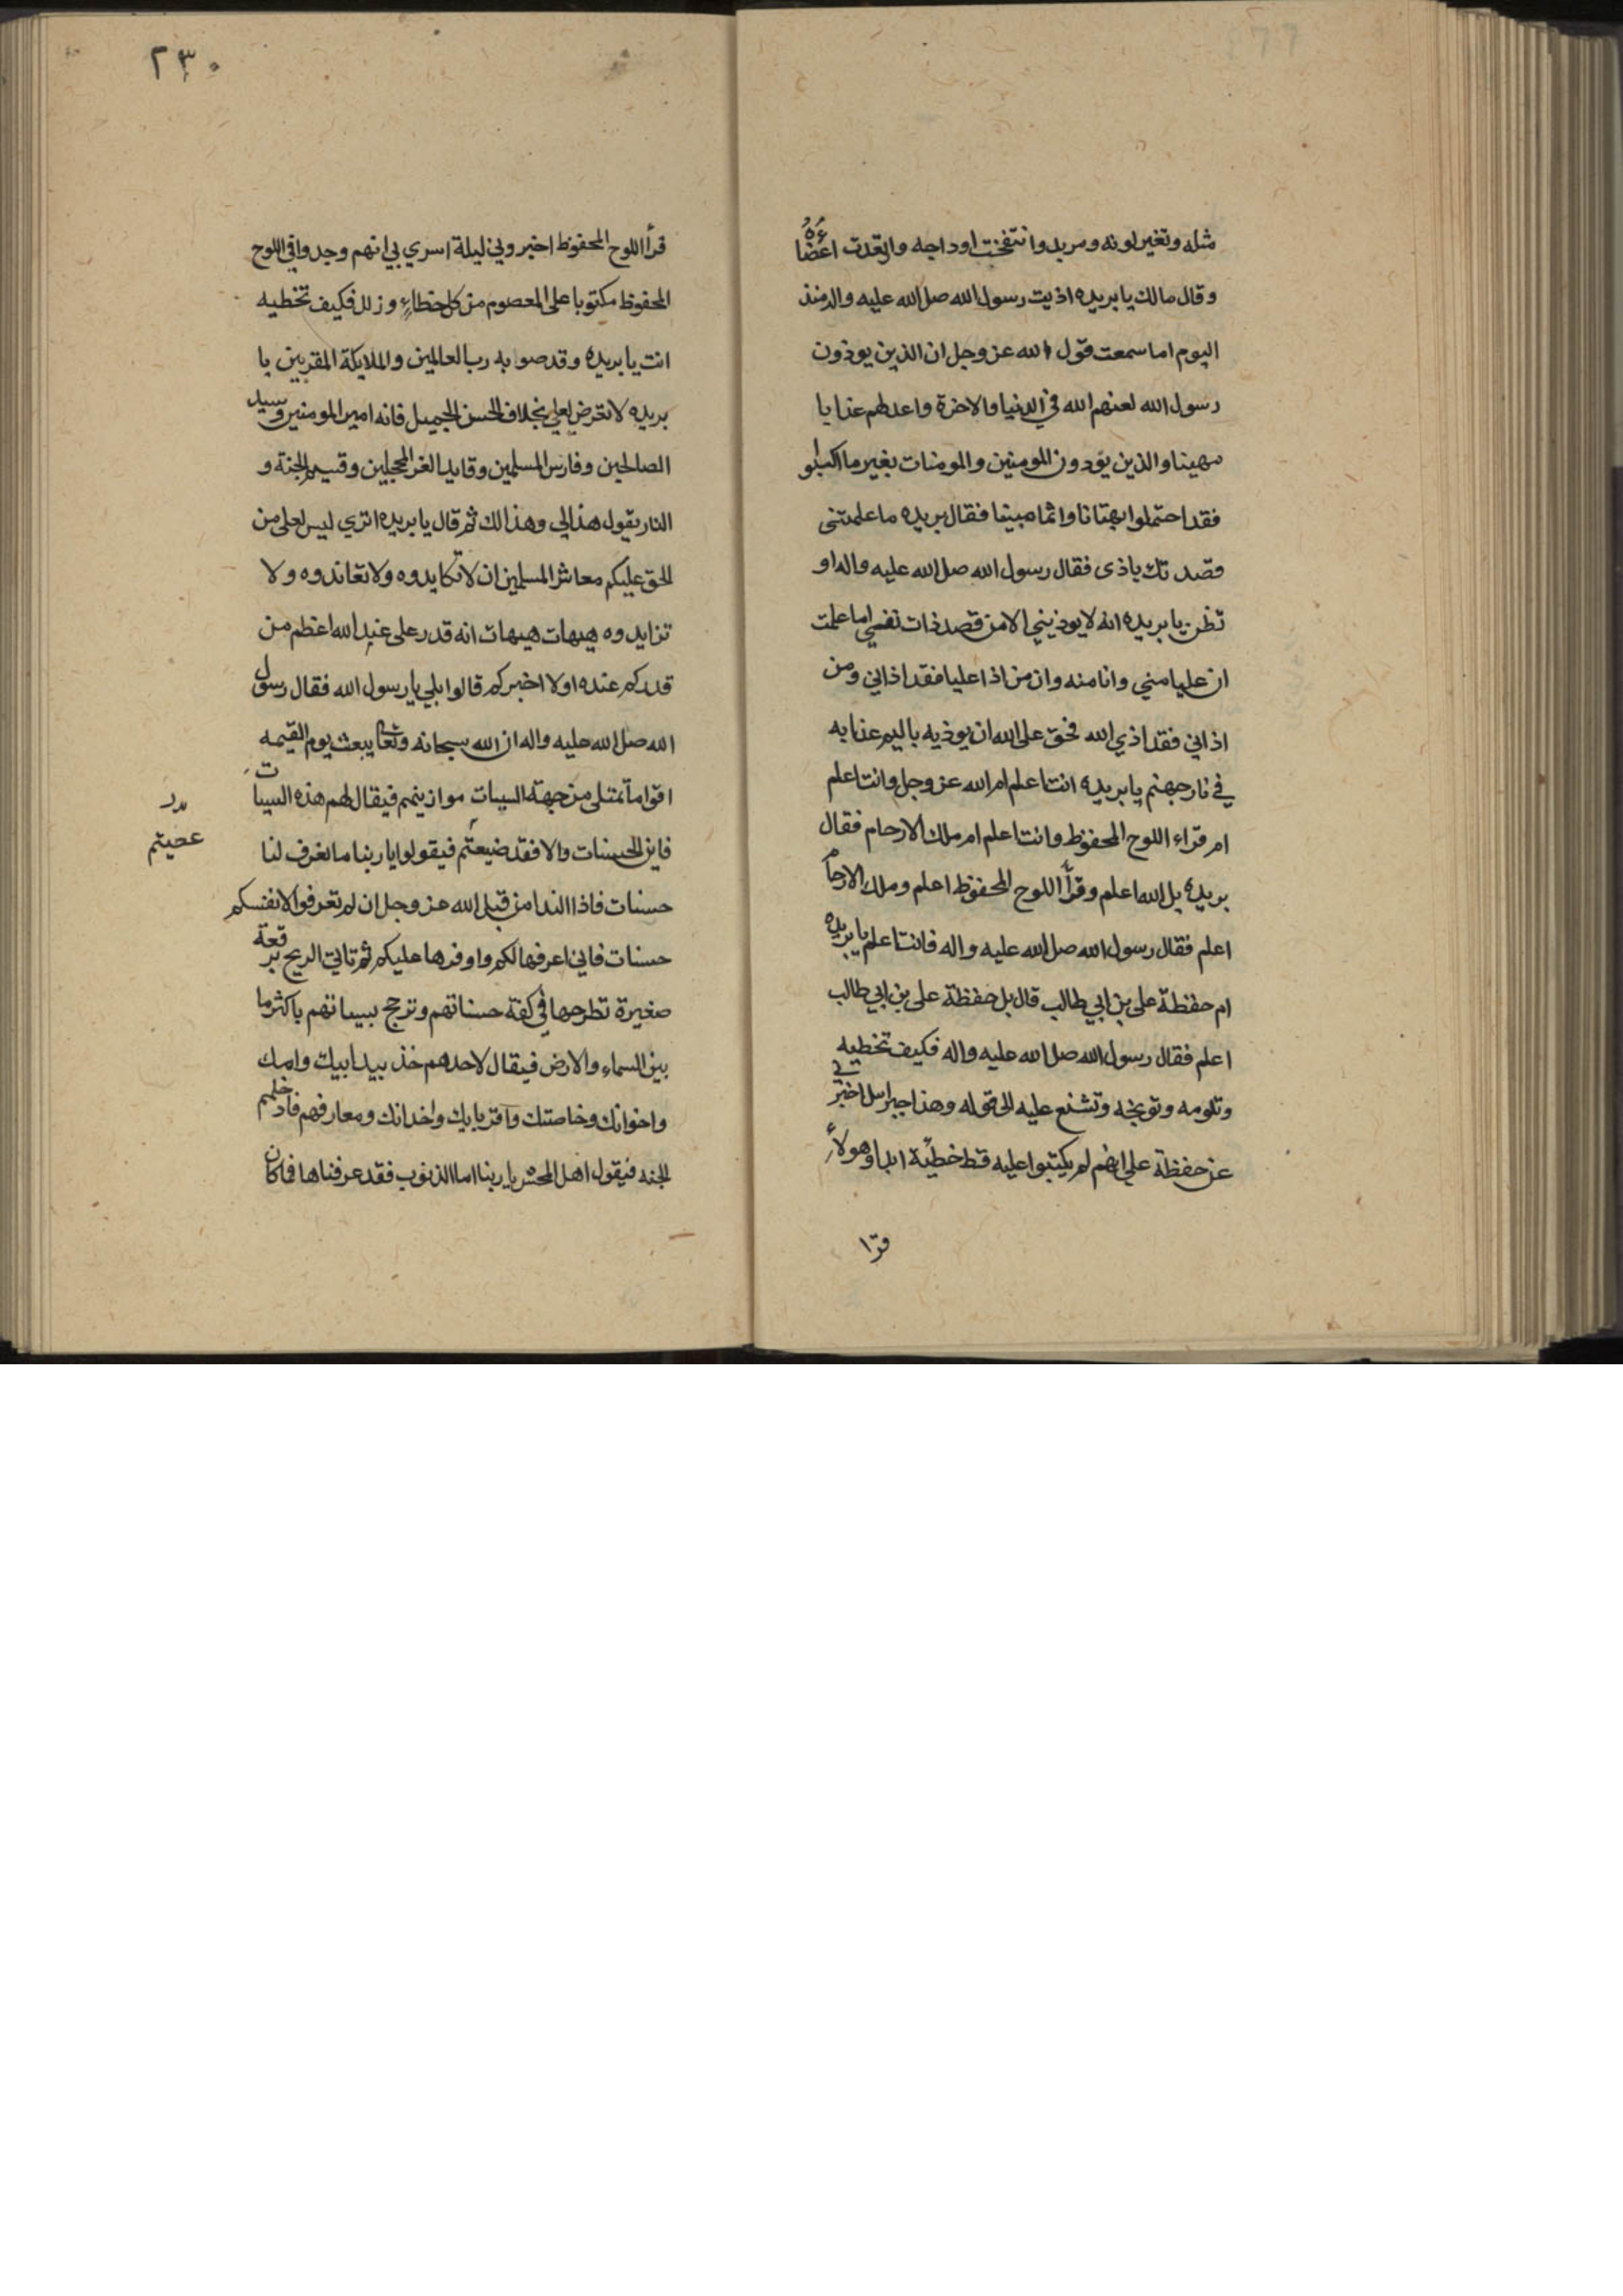 مثله وتغير لونه ومريد وانتفخت اوداجه وارتعدت اعضاؤه
وقال مالك يا بريده اذيت رسول الله صلى الله عليه واله منذ
اليوم اما سمعت قول الله عز وجل ان الذين يوذون
رسول الله لعنهم الله في الدنيا والاخرة واعد لهم عذابا
مهينا والذين يؤدون المومنين والمومنات بغير ما اكتسبوا
فقد احتملوا بهتانا واثما مبينا فقال بريده ما علمتنى
قصدتك باذى فقال رسول الله صلى الله عليه واله او
تظن يا بريده انه لا يوذيني الا من قصد ذات نفسي اما علمت
ان عليا مني وانا منه وان من اذا عليا فقد اذاني ومن
اذاني فقد اذي الله فحق على الله ان يوذيه باليم عذابه
في نار جهنم يا بريده انت اعلم ام الله عز وجل وانت اعلم
ام قراء اللوح المحفوظ وانت اعلم ام ملك الارحام فقال
بريده بل الله اعلم وقرأ اللوح المحفوظ اعلم وملك الارحام
اعلم فقال رسول الله صلى الله عليه واله فانت اعلم يا بريده
ام حفظة على بن ابي طالب قال بل حفظة على بن ابي طالب
اعلم فقال رسول الله صلى الله عليه واله فكيف تخطيه
وتلومه وتوبخه وتشنع عليه الى قوله وهذا جبراىيل اخبرني
عن حفظة على انهم لم يكتبوا عليه قط خطيئة ابدا وهولاء
قرا
٢٣٠
قرأ اللوح المحفوظ اخبروني ليلة اسري بي انهم وجدوا في اللوح
المحفوظ مكتوبا على المعصوم من كل خطاء وزلل فكيف تخطيه
انت يا بريده وقد صوبه رب العالمين والملايكة المقربين يا
بريده لا تعرض لعلي بخلاف الحسن الجميل فانه امير المومنين وسيد
الصالحين وفارس المسلمين وقايد الغر المحجلين وقسيم الجنة و
النار يقول هذا لي وهذا لك ثم قال يا بريده اترى ليس لعلى من
الحق عليكم معاشر المسلمين ان لا تكايدوه ولا تعاندوه ولا
تزايدوه هيهات هيهات انه قدر على عند الله اعظم من
قدركم عنده اولا اخبركم قالوا بلي يا رسول الله فقال رسول
الله صلى الله عليه واله ان الله سبحانه وتعا يبعث يوم القيمه
اقواما تمتلى من جهة السيبات موازينهم فيقال لهم هذه السيبات
فاين الحسنات والا فقد ضيعتم فيقولوا يا ربنا ما نعرف لنا
عصيتم
حسنات فاذا الندا من قبل الله عز وجل ان لم تعرفوا لانفسكم
حسنات فاني اعرفها لكم واوفرها عليكم ثم تاتي الريح برقعة
صغيرة تطرحها في كفة حسناتهم وترجح بسيىاتهم باكثر ما
بين السماء والارض فيقال لاحدهم خذ بيد ابيك وامك
واخوانك وخاصتك واقربايك واخدانك ومعارفهم فادخلهم
الجنه فيقول اهل المحشر يا ربنا اما الذنوب فقد عرفناها فما كان